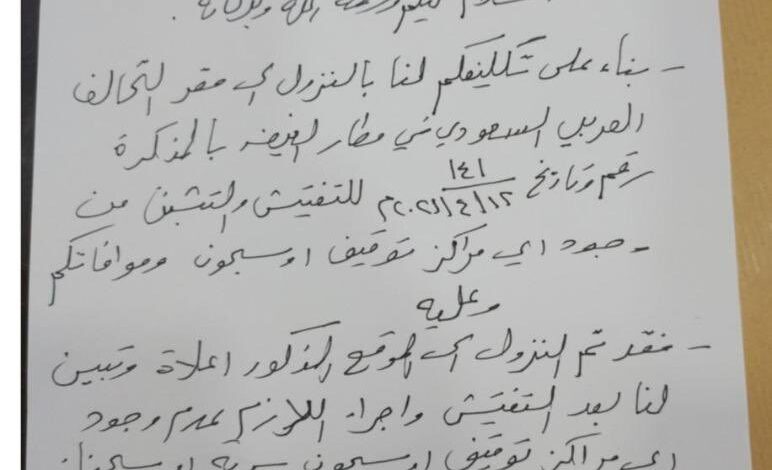 السلام عليكم ورحمة الله وبركاته.
- بناء على تكليفكم لنا بالنزول الى مقر التحالف
العربي السعودي في مطار الغيضه بالمذكرة
رقم وتاريخ ١٤١ / ١٢/٤/٢٠٢١م للتفتيش والتثبت من
وجود اي مراكز توقيف او سجون وموافاتكم
وعليه
- فقد تم النزول الى الموقع المذكور اعلاة وتبين
لنا بعد التفتيش واجراء اللازم عدم وجود
اي مراكز توقيف او سجون سريه او سجناء